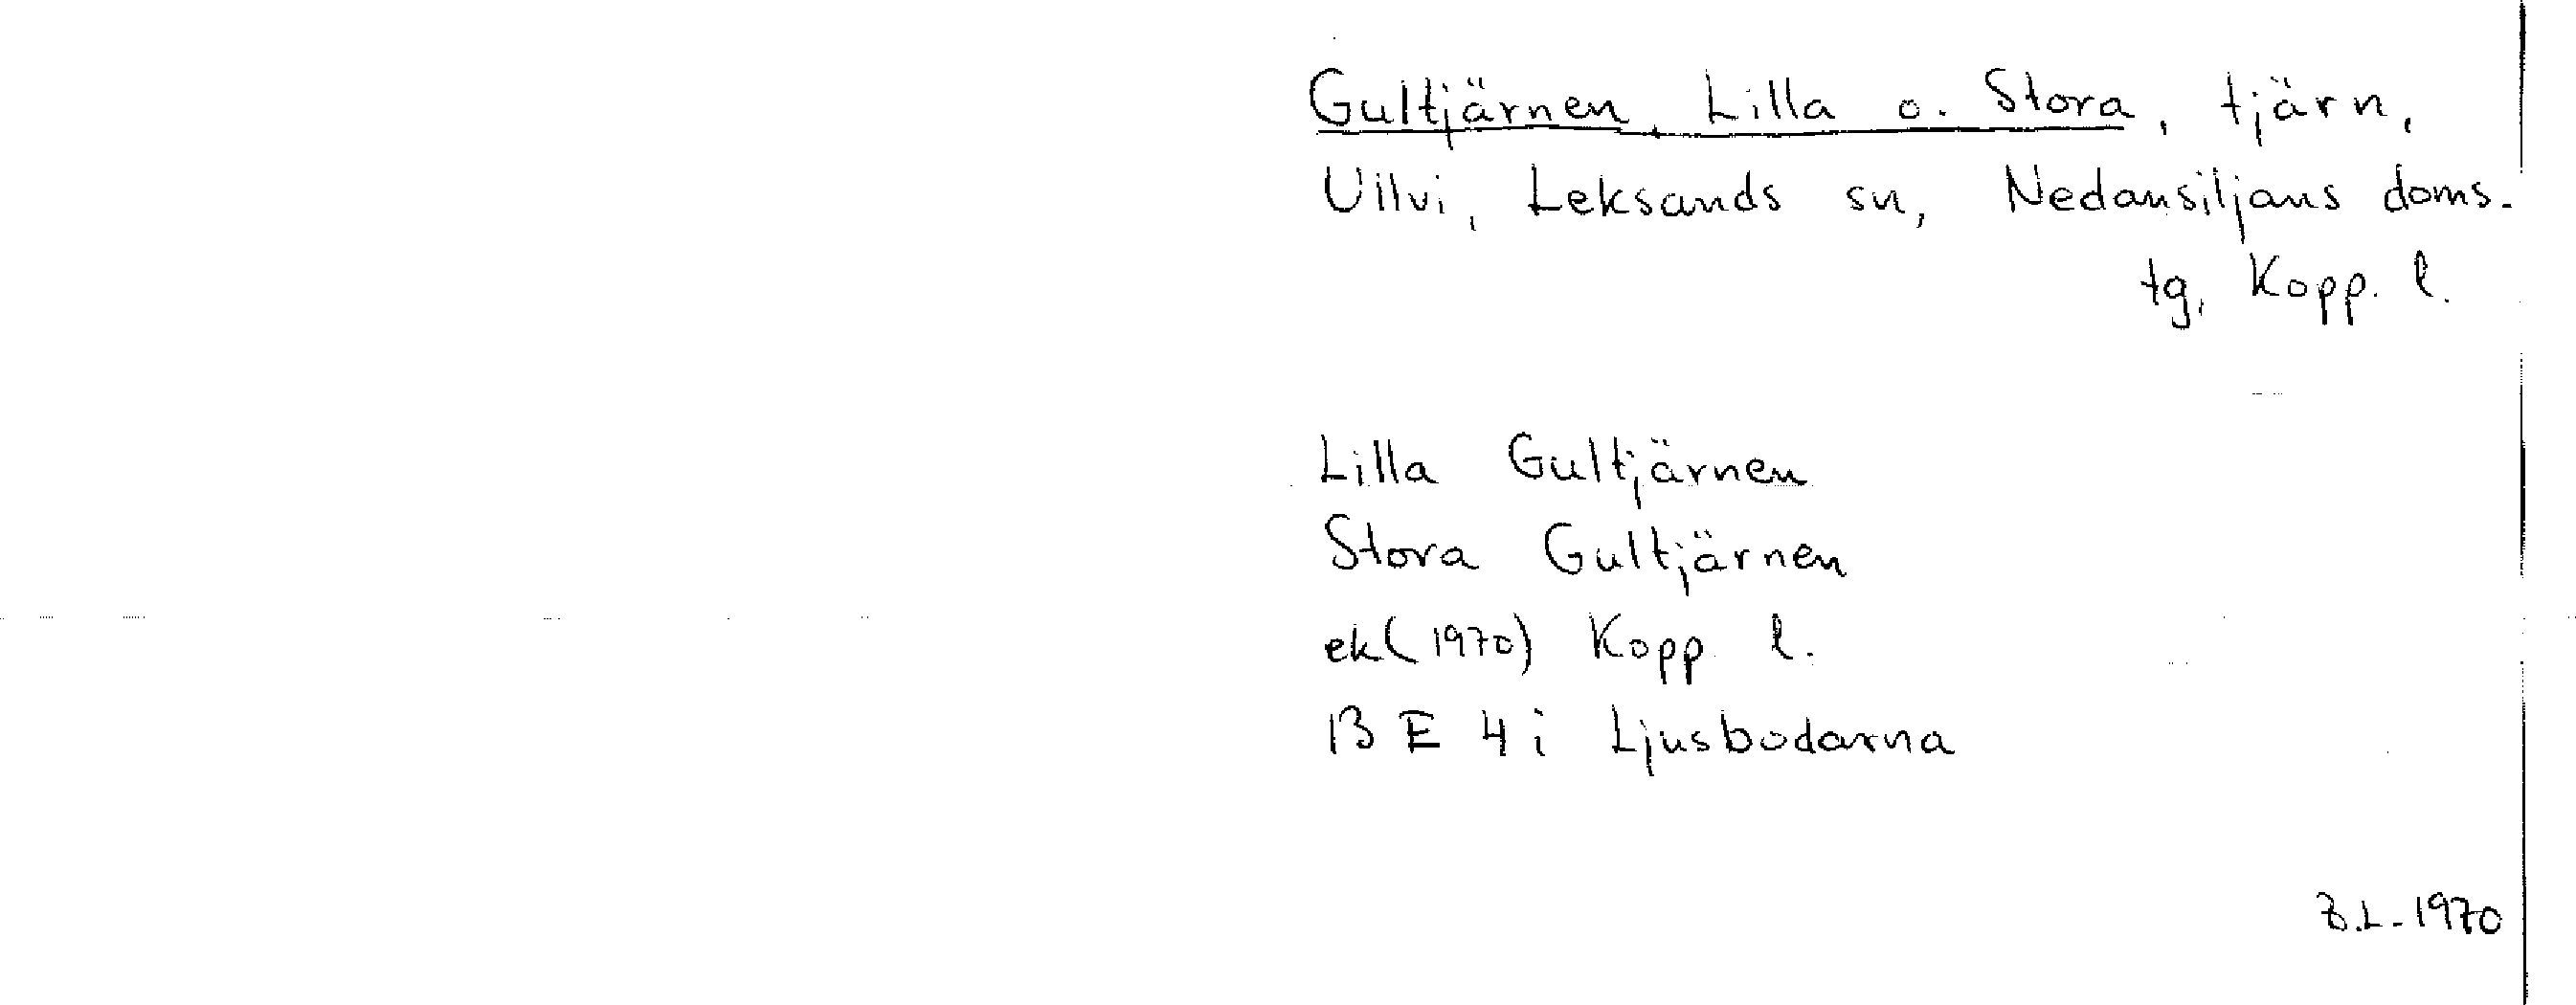 Gultjärnen, Lilla o. Stora, tjärn,
Ullvi, Leksands sn, Nedansiljans doms-
tg, Kopp. l.
Lilla Gultjärnen
Stora Gultjärnen
ek(1970) Kopp l.
13 E 4 i Ljusbodarna
B.L. 1970